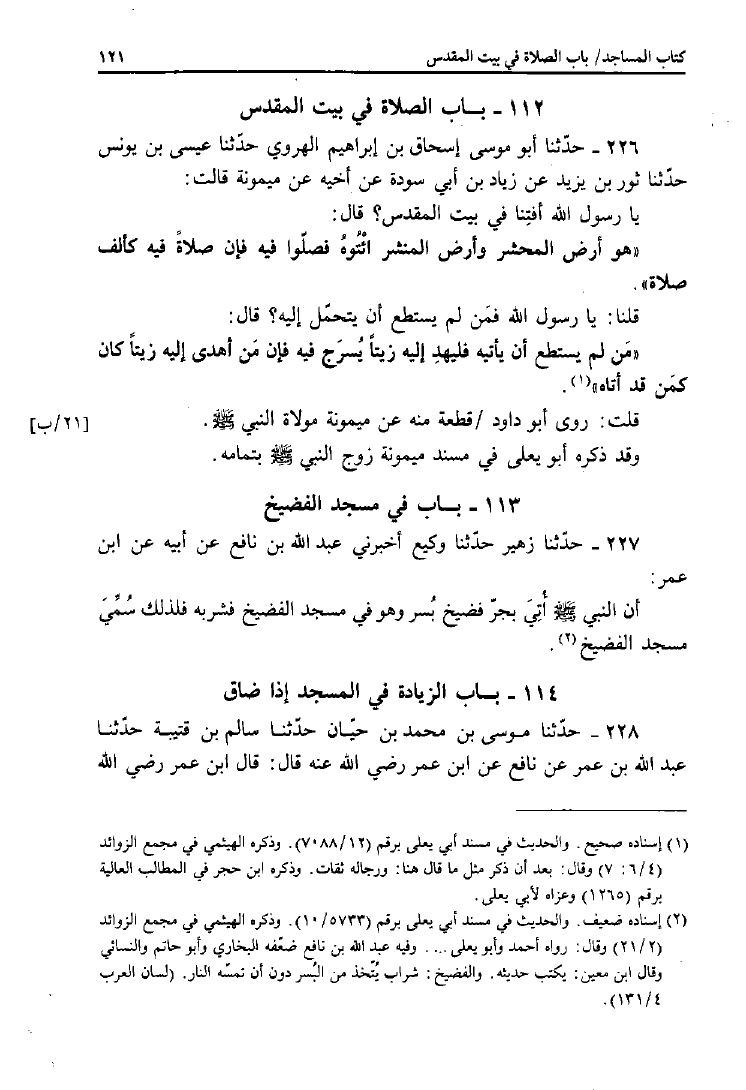 كتاب المساجد/ باب الصلاة في بيت المقدس ١٢١
١١٢ - بـاب الصلاة في بيت المقدس
٢٢٦ - حدّثنا أبو موسى إسحاق بن إبراهيم الهروي حدّثنا عيسى بن يونس
حدّثنا ثور بن يزيد عن زياد بن أبي سودة عن أخيه عن ميمونة قالت:
يا رسول الله أفتِنا في بيت المقدس؟ قال:
«هو أرض المحشر وأرض المنشر ائْتُوهُ فصلّوا فيه فإن صلاةً فيه كألف
صلاة».
قلنا: يا رسول الله فمَن لم يستطع أن يتحمّل إليه؟ قال:
«مَن لم يستطع أن يأتيه فليهدِ إليه زيتاً يُسرَج فيه فإن مَن أهدى إليه زيتاً كان
كمَن قد أتاه»(١).
قلت: روى أبو داود /قطعة منه عن ميمونة مولاة النبي ﷺ. [٢١/ب]
وقد ذكره أبو يعلى في مسند ميمونة زوج النبي ﷺ بتمامه.
١١٣ - بـاب في مسجد الفضيخ
٢٢٧ - حدّثنا زهير حدّثنا وكيع أخبرني عبد الله بن نافع عن أبيه عن ابن
عمر:
أن النبي ﷺ أُتِيَ بجرّ فضيخ بُسر وهو في مسجد الفضيخ فشربه فلذلك سُمِّيَ
مسجد الفضيخ(٢).
١١٤ - بـاب الزيادة في المسجد إذا ضاق
٢٢٨ - حدّثنا موسى بن محمد بن حيّان حدّثنا سالم بن قتيبة حدّثنا
عبد الله بن عمر عن نافع عن ابن عمر رضي الله عنه قال: قال ابن عمر رضي الله
(١) إسناده صحيح. والحديث في مسند أبي يعلى برقم (٧٠٨٨/١٢). وذكره الهيثمي في مجمع الزوائد
(٦/٤: ٧) وقال: بعد أن ذكر مثل ما قال هنا: ورجاله ثقات. وذكره ابن حجر في المطالب العالية
برقم (١٢٦٥) وعزاه لأبي يعلى.
(٢) إسناده ضعيف. والحديث في مسند أبي يعلى برقم (١٠/٥٧٣٣). وذكره الهيثمي في مجمع الزوائد
(٢١/٢) وقال: رواه أحمد وأبو يعلى... وفيه عبد الله بن نافع ضعّفه البخاري وأبو حاتم والنسائي
وقال ابن معين: يكتب حديثه. والفضيخ: شراب يُتّخذ من البُسر دون أن تمسّه النار. (لسان العرب
١٣١/٤).